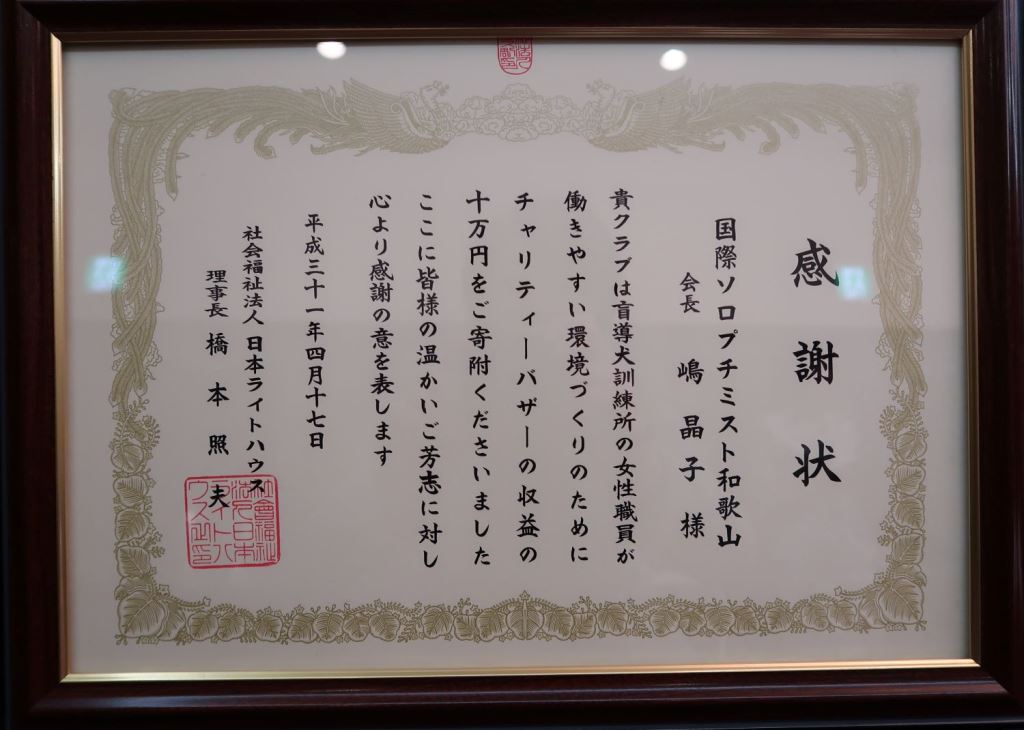 感謝状
国際ソロプチミスト和歌山
会長 嶋晶子様
貴クラブは盲導犬訓練所の女性職員が
働きやすい環境づくりのために
チャリティーバザーの収益の
十万円をご寄附くださいました
ここに皆様の温かいご芳志に対し
心より感謝の意を表します
平成三十一年四月十七日
社会福祉法人 日本ライトハウス
理事長 橋本照夫